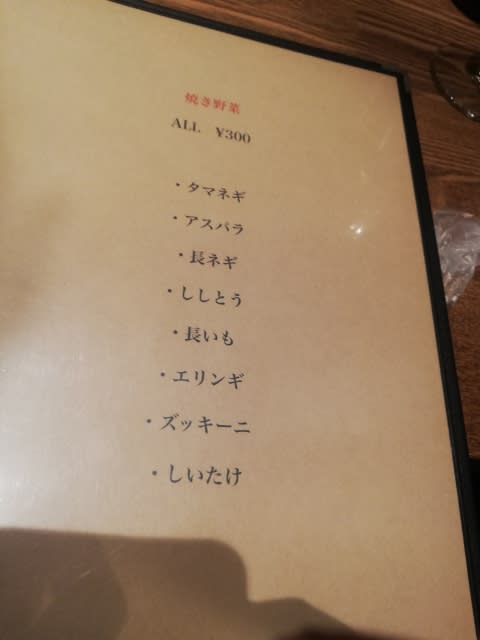 焼き野菜
ALL ¥300
・タマネギ
・アスパラ
・長ネギ
・ししとう
・長いも
・エリンギ
・ズッキーニ
・しいたけ